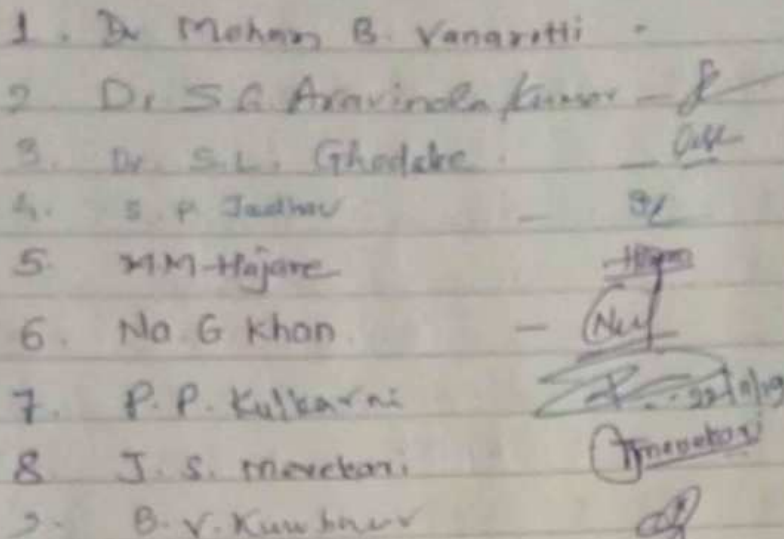 1. Dr Mohan B. Vanarotti -
2. Dr S.G. Aravinda Kumar -
3. Dr. S.L. Ghodake. -
4. S. P Jadhav -
5. M.M-Hajare
6. Na. G Khan. -
7. P.P. Kulkarni
8 J. S. Mevekari Jmevekari
9. B.V.